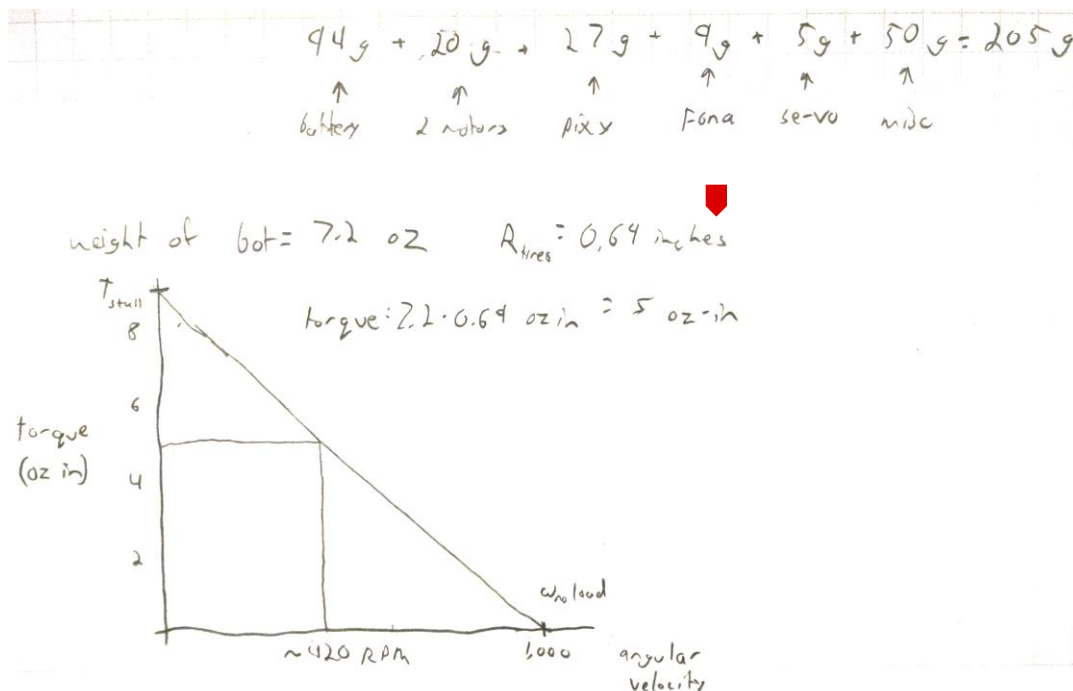 94 g + 20 g + 27 g + 9 g + 5 g + 50 g = 205 g
↑ ↑ ↑ ↑ ↑ ↑
battery 2 motors pixy Fona servo misc
weight of bot = 7.2 oz R tires = 0.64 inches
T stall
torque: 7.2 · 0.64 oz in = 5 oz-in
8
6
torque
(oz in)
4
2
ω no load
~420 RPM 1,000 angular
velocity